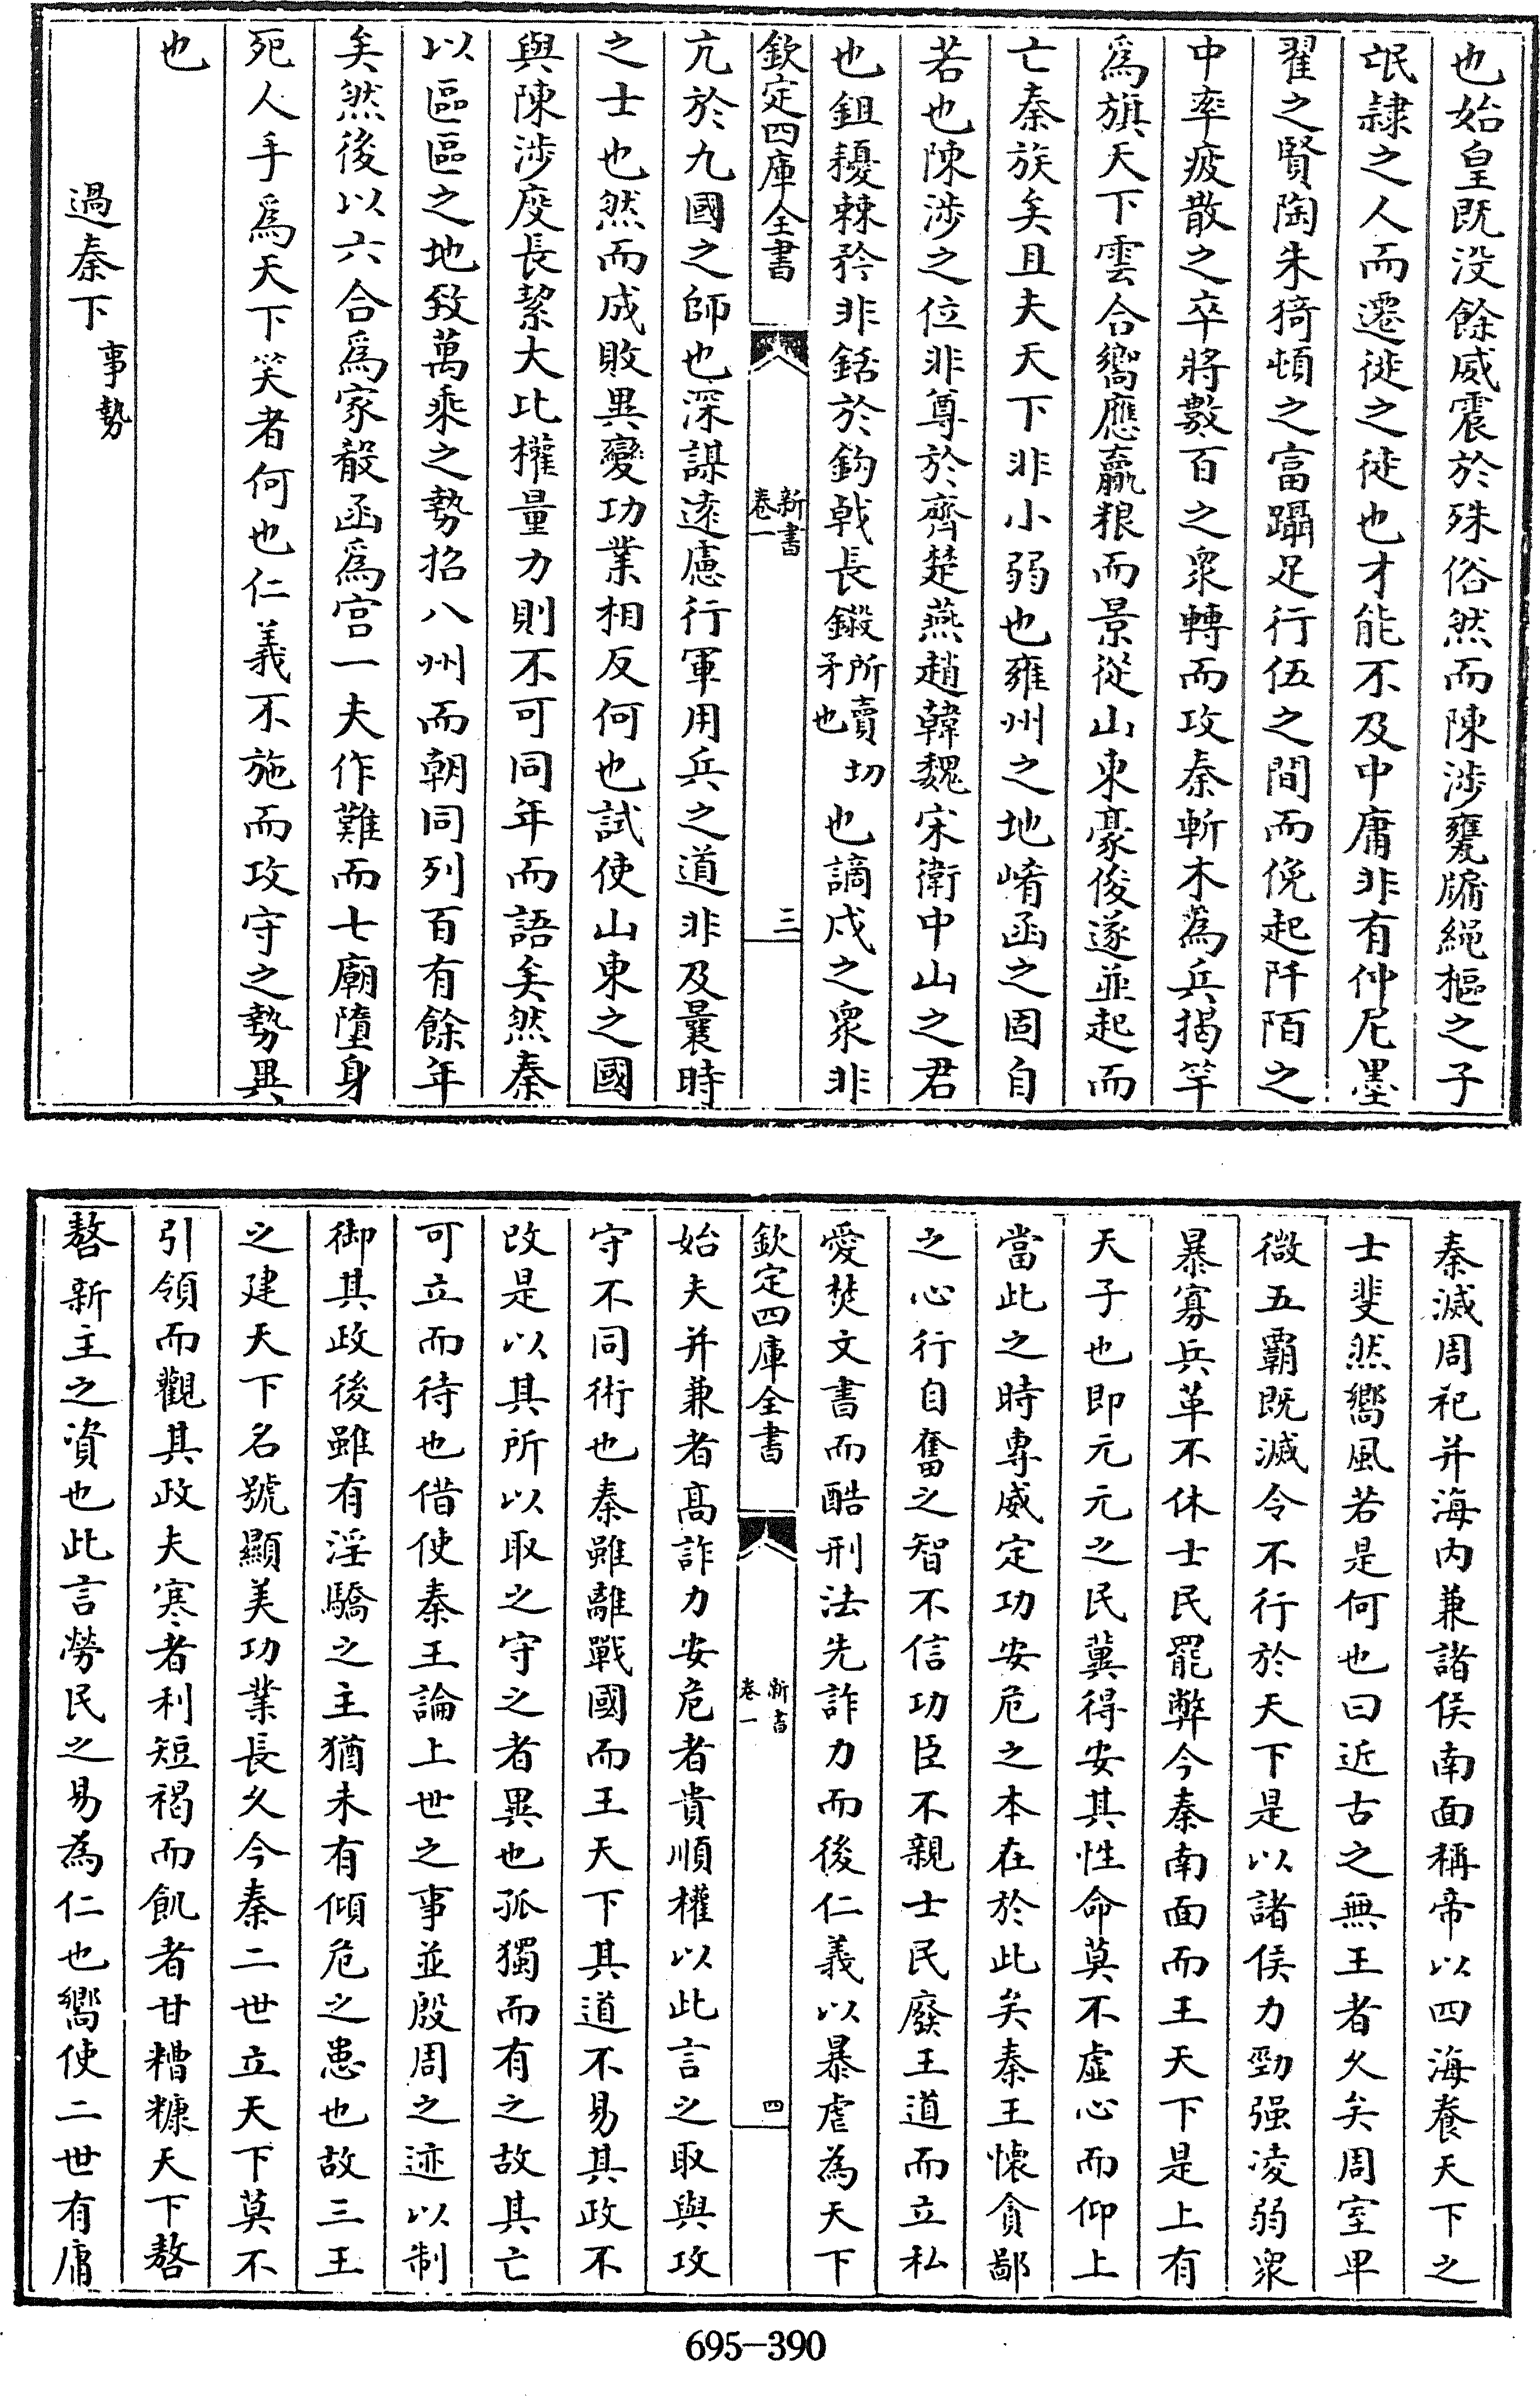 也始皇既没餘威震於殊俗然而陳涉甕牖繩樞之子
氓隷之人而遷徙之徒也才能不及中庸非有仲尼墨
翟之賢陶朱猗頓之富躡足行伍之間而俛起阡陌之
中率疲散之卒將數百之衆轉而攻秦斬木為兵揭竿
爲旗天下雲合嚮應贏粮而景從山東豪俊遂並起而
亡秦族矣且夫天下非小弱也雍州之地崤函之固自
若也陳涉之位非尊於齊楚燕趙韓魏宋衛中山之君
也鉏耰棘矜非銛於鈎戟長鎩所賣切矛也也謫戍之衆非
欽定四庫全書
新書
卷一
三
亢於九國之師也深謀逺慮行軍用兵之道非及曩時
之士也然而成敗異變功業相反何也試使山東之國
與陳涉度長絜大比權量力則不可同年而語矣然秦
以區區之地致萬乘之勢招八州而朝同列百有餘年
矣然後以六合爲家殽函爲宫一夫作難而七廟墮身
死人手爲天下笑者何也仁義不施而攻守之勢異
也
過秦下事勢
秦滅周祀并海内兼諸侯南面稱帝以四海養天下之
士斐然嚮風若是何也曰近古之無王者久矣周室卑
微五霸既滅令不行於天下是以諸侯力勁强凌弱衆
暴寡兵革不休士民罷弊今秦南面而王天下是上有
天子也即元元之民冀得安其性命莫不虚心而仰上
當此之時專威定功安危之本在於此矣秦王懐貪鄙
之心行自奮之智不信功臣不親士民廢王道而立私
愛焚文書而酷刑法先詐力而後仁義以暴虐為天下
欽定四庫全書
新書
卷一
四
始夫并兼者髙詐力安危者貴順權以此言之取與攻
守不同術也秦雖離戰國而王天下其道不易其政不
改是以其所以取之守之者異也孤獨而有之故其亡
可立而待也借使秦王論上世之事並殷周之迹以制
御其政後雖有淫驕之主猶未有傾危之患也故三王
之建天下名號顯美功業長久今秦二世立天下莫不
引領而觀其政夫寒者利短褐而飢者甘糟糠天下嗸
嗸新主之資也此言勞民之易為仁也嚮使二世有庸
695-390